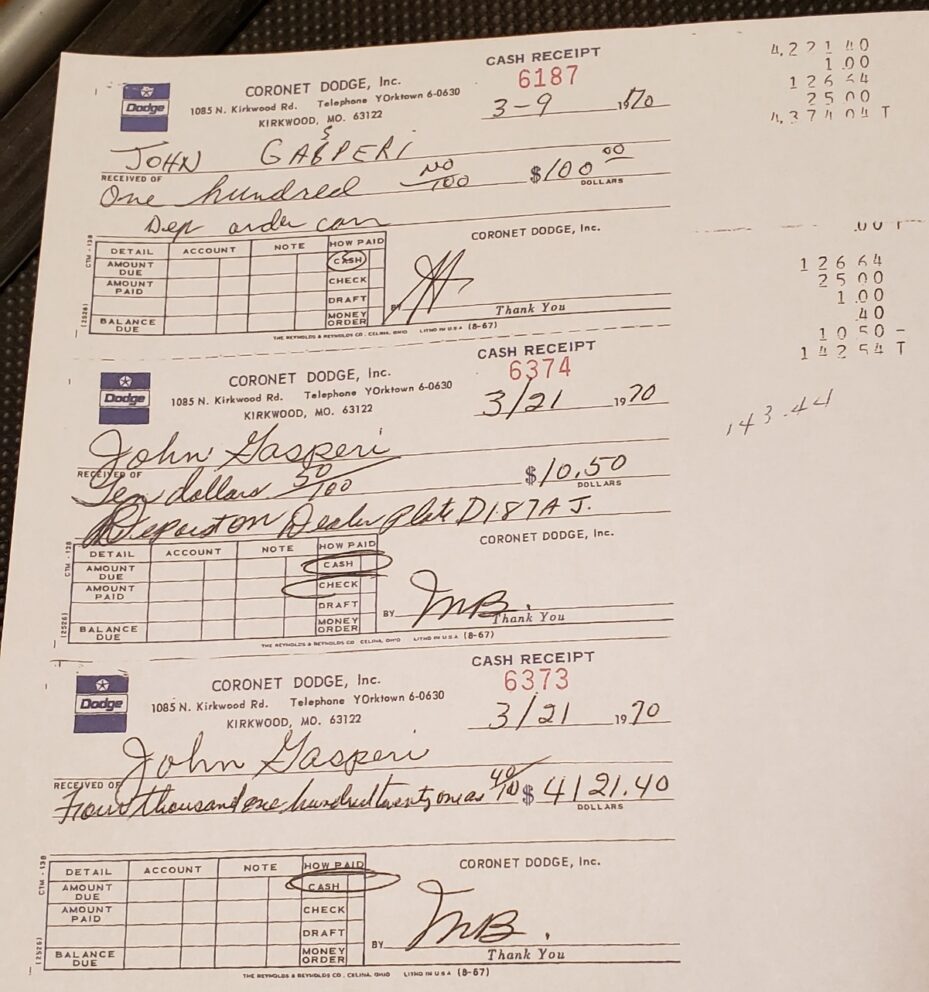 CASH RECEIPT
Dodge
CORONET DODGE, Inc.
6187
1085 N. Kirkwood Rd. Telephone YOrktown 6-0630
3-9 1970
KIRKWOOD, MO. 63122
JOHN GASPERI
RECEIVED OF
One hundred NO/100 $100 00
DOLLARS
Dep order car
CORONET DODGE, Inc.
DETAIL ACCOUNT NOTE HOW PAID
AMOUNT DUE CASH
AMOUNT PAID CHECK
DRAFT
BALANCE DUE MONEY ORDER
BY
Thank You
CTM - 138
(2526)
THE REYNOLDS & REYNOLDS CO., CELINA, OHIO LITHO IN U.S.A. (8-67)
4,221 40
1.00
126 64
25 00
4,374 04 T
.00 T
126 64
25 00
1.00
.40
10 50 -
142 54 T
143.44
CASH RECEIPT
Dodge
CORONET DODGE, Inc.
6374
1085 N. Kirkwood Rd. Telephone YOrktown 6-0630
3/21 1970
KIRKWOOD, MO. 63122
John Gasperi
RECEIVED OF
Ten dollars 50/100 $10.50
DOLLARS
Deposit on Dealer Plate D187A J.
CORONET DODGE, Inc.
DETAIL ACCOUNT NOTE HOW PAID
AMOUNT DUE CASH
AMOUNT PAID CHECK
DRAFT
BALANCE DUE MONEY ORDER
BY MB.
Thank You
CTM - 138
(2526)
THE REYNOLDS & REYNOLDS CO., CELINA, OHIO LITHO IN U.S.A. (8-67)
CASH RECEIPT
Dodge
CORONET DODGE, Inc.
6373
1085 N. Kirkwood Rd. Telephone YOrktown 6-0630
3/21 1970
KIRKWOOD, MO. 63122
John Gasperi
RECEIVED OF
Four thousand one hundred twenty one $4121.40
DOLLARS
CORONET DODGE, Inc.
DETAIL ACCOUNT NOTE HOW PAID
AMOUNT DUE CASH
AMOUNT PAID CHECK
DRAFT
BALANCE DUE MONEY ORDER
BY MB.
Thank You
CTM - 138
(2526)
THE REYNOLDS & REYNOLDS CO., CELINA, OHIO LITHO IN U.S.A. (8-67)